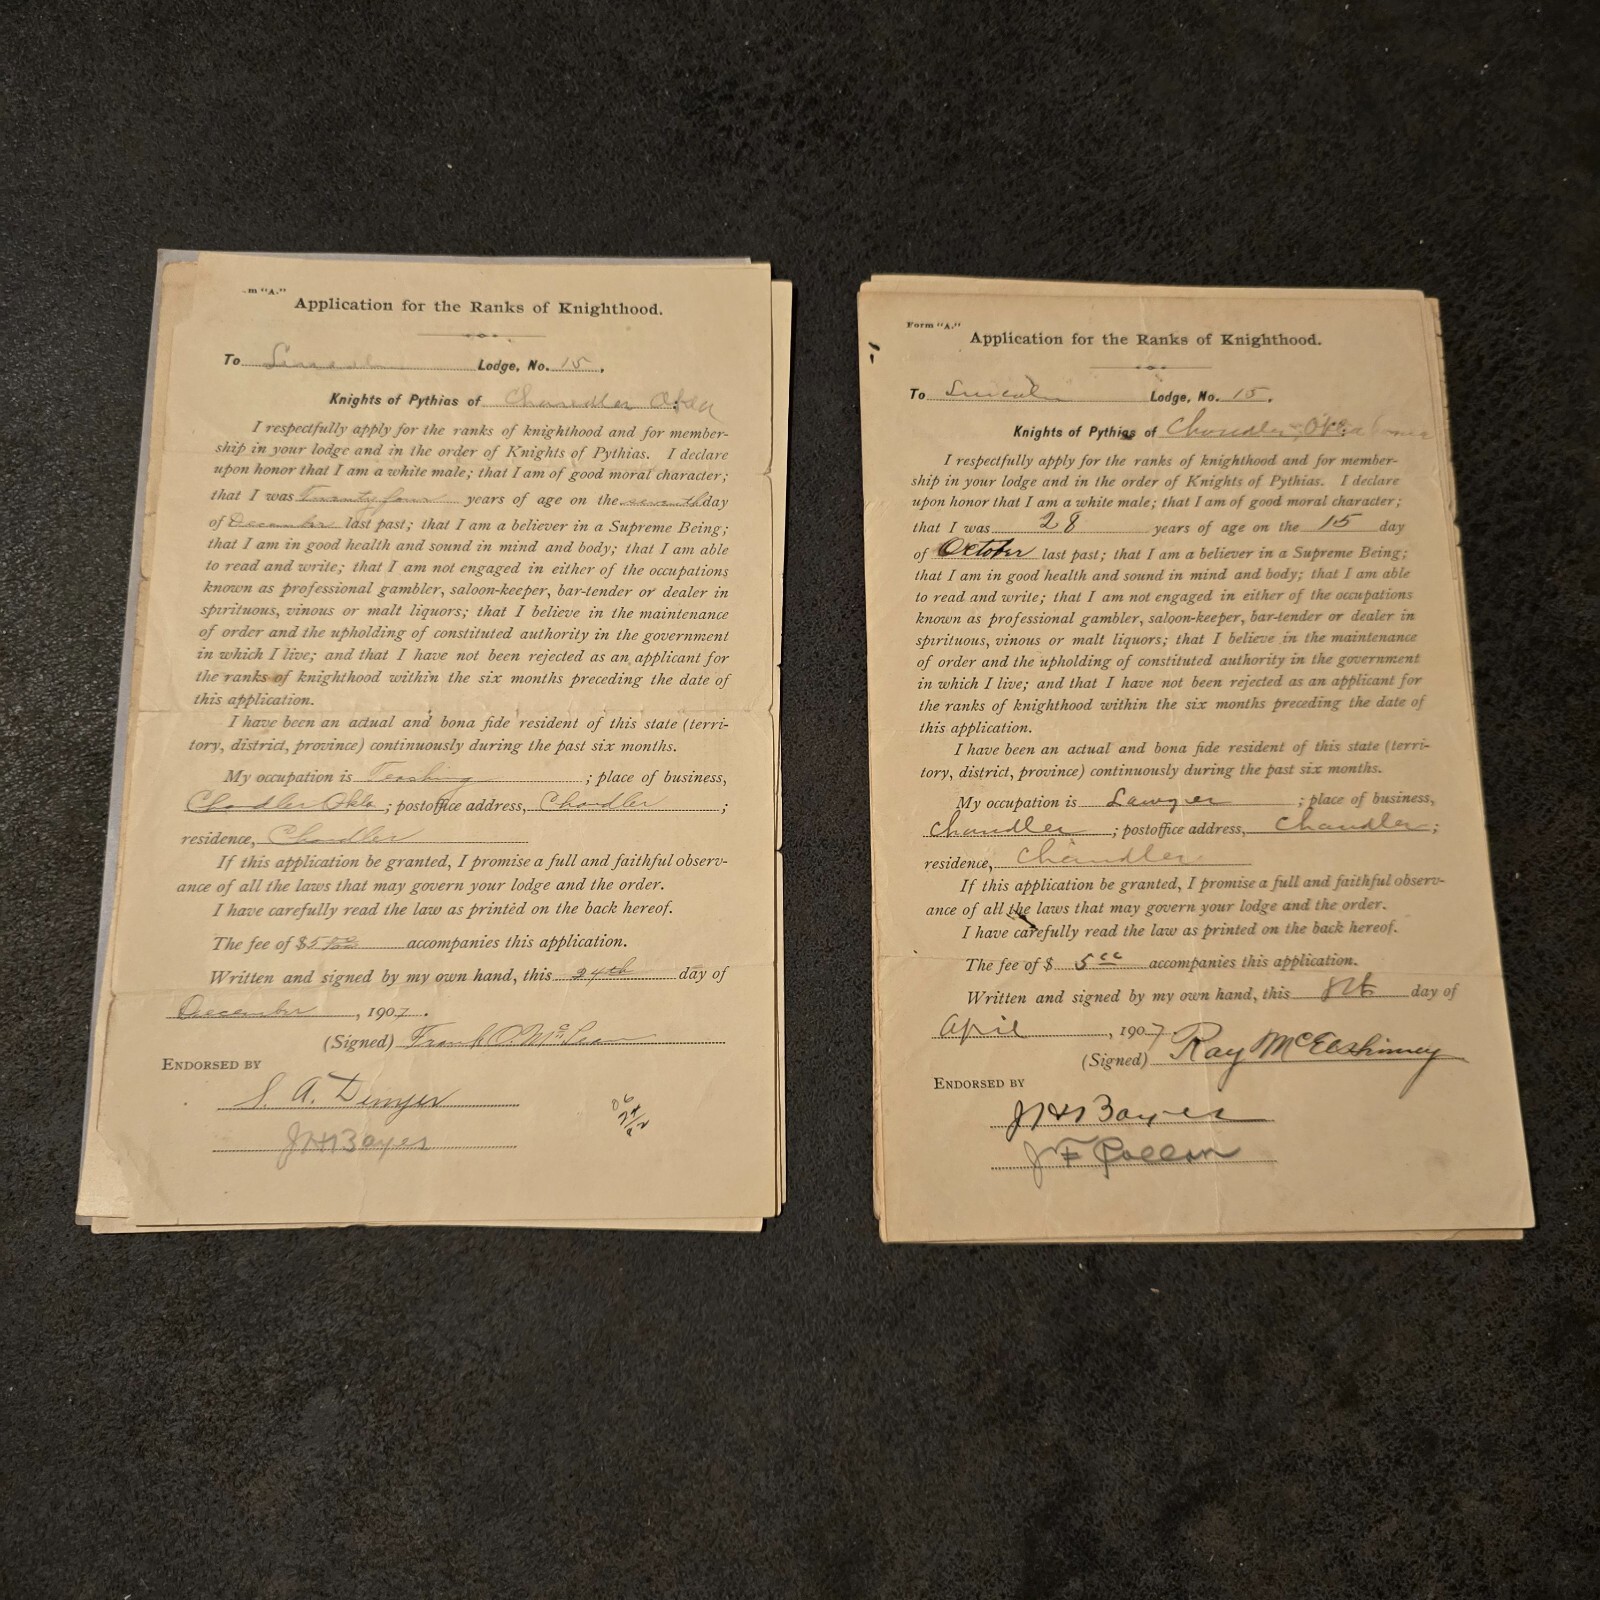 m "A."
Application for the Ranks of Knighthood.
To Lincoln Lodge, No. 15.
Knights of Pythias of Chandler Okla
I respectfully apply for the ranks of knighthood and for member-
ship in your lodge and in the order of Knights of Pythias. I declare
upon honor that I am a white male; that I am of good moral character;
that I was Twenty four years of age on the seventh day
of December last past; that I am a believer in a Supreme Being;
that I am in good health and sound in mind and body; that I am able
to read and write; that I am not engaged in either of the occupations
known as professional gambler, saloon-keeper, bar-tender or dealer in
spirituous, vinous or malt liquors; that I believe in the maintenance
of order and the upholding of constituted authority in the government
in which I live; and that I have not been rejected as an applicant for
the ranks of knighthood within the six months preceding the date of
this application.
I have been an actual and bona fide resident of this state (terri-
tory, district, province) continuously during the past six months.
My occupation is Teaching ; place of business,
Chandler Okla ; postoffice address, Chandler ;
residence, Chandler
If this application be granted, I promise a full and faithful observ-
ance of all the laws that may govern your lodge and the order.
I have carefully read the law as printed on the back hereof.
The fee of $5 accompanies this application.
Written and signed by my own hand, this 24th day of
December , 1907.
(Signed) Frank O. McLean
ENDORSED BY
S. A.
J H Bayes
Form "A."
Application for the Ranks of Knighthood.
To Lincoln Lodge, No. 15.
Knights of Pythias of Chandler, Oklahoma
I respectfully apply for the ranks of knighthood and for member-
ship in your lodge and in the order of Knights of Pythias. I declare
upon honor that I am a white male; that I am of good moral character;
that I was 28 years of age on the 15 day
of October last past; that I am a believer in a Supreme Being;
that I am in good health and sound in mind and body; that I am able
to read and write; that I am not engaged in either of the occupations
known as professional gambler, saloon-keeper, bar-tender or dealer in
spirituous, vinous or malt liquors; that I believe in the maintenance
of order and the upholding of constituted authority in the government
in which I live; and that I have not been rejected as an applicant for
the ranks of knighthood within the six months preceding the date of
this application.
I have been an actual and bona fide resident of this state (terri-
tory, district, province) continuously during the past six months.
My occupation is Lawyer ; place of business,
Chandler ; postoffice address, Chandler ;
residence, Chandler
If this application be granted, I promise a full and faithful observ-
ance of all the laws that may govern your lodge and the order.
I have carefully read the law as printed on the back hereof.
The fee of $ 5 accompanies this application.
Written and signed by my own hand, this 8th day of
April , 1907
(Signed) Ray McElhinney
ENDORSED BY
J H Bayes
J F